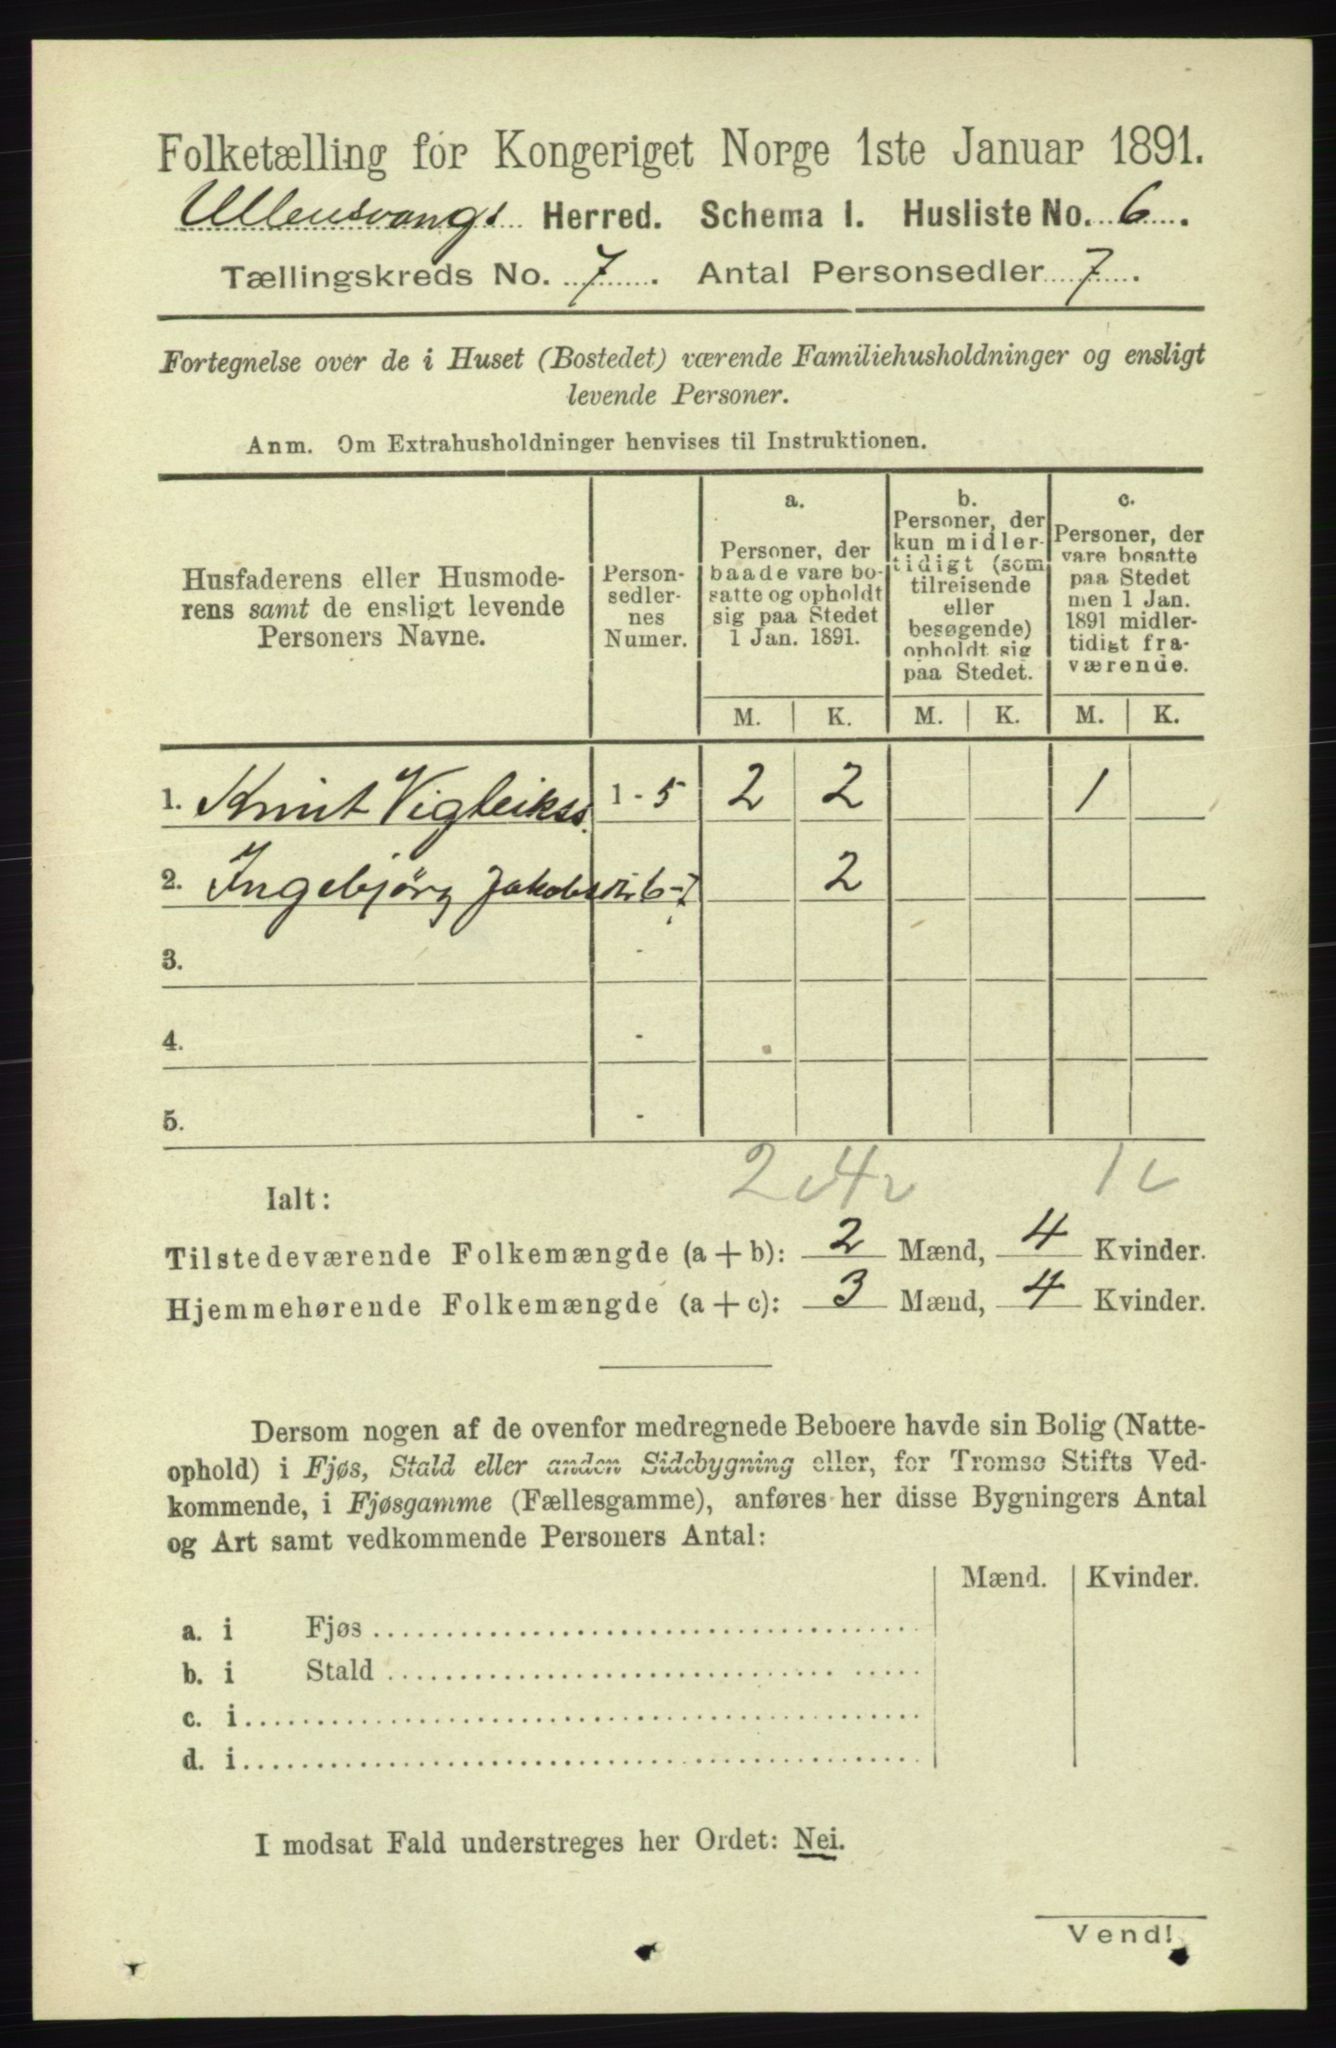 Folketælling for Kongeriget Norge 1ste Januar 1891.
Ullensvangs Herred. Schema I. Husliste No. 6.
Tællingskreds No. 7. Antal Personsedler 7.
Fortegnelse over de i Huset (Bostedet) værende Familiehusholdninger og ensligt
levende Personer.
Anm. Om Extrahusholdninger henvises til Instruktionen.
Husfaderens eller Husmode-
rens samt de ensligt levende
Personers Navne.
Person-
sedler-
nes
Numer.
a.
Personer, der
baade vare bo-
satte og opholdt
sig paa Stedet
1 Jan. 1891.
b.
Personer, der
kun midler-
tidigt (som
tilreisende
eller
besøgende)
opholdt sig
paa Stedet.
c.
Personer, der
vare bosatte
paa Stedet
men 1 Jan.
1891 midler-
tidigt fra-
værende.
M. K. M. K. M. K.
1. Knut Vigleikss. 1 - 5 2 2 1
2. Ingebjörg Jakobsdtr 6-7 2
3. -
4. -
5. -
2 4 1
Ialt:
Tilstedeværende Folkemængde (a + b): 2 Mænd, 4 Kvinder.
Hjemmehørende Folkemængde (a + c): 3 Mænd, 4 Kvinder.
Dersom nogen af de ovenfor medregnede Beboere havde sin Bolig (Natte-
ophold) i Fjøs, Stald eller anden Sidebygning eller, for Tromsø Stifts Ved-
kommende, i Fjøsgamme (Fællesgamme), anføres her disse Bygningers Antal
og Art samt vedkommende Personers Antal:
Mænd. Kvinder.
a. i Fjøs
b. i Stald
c. i
d. i
I modsat Fald understreges her Ordet: Nei.
Vend!